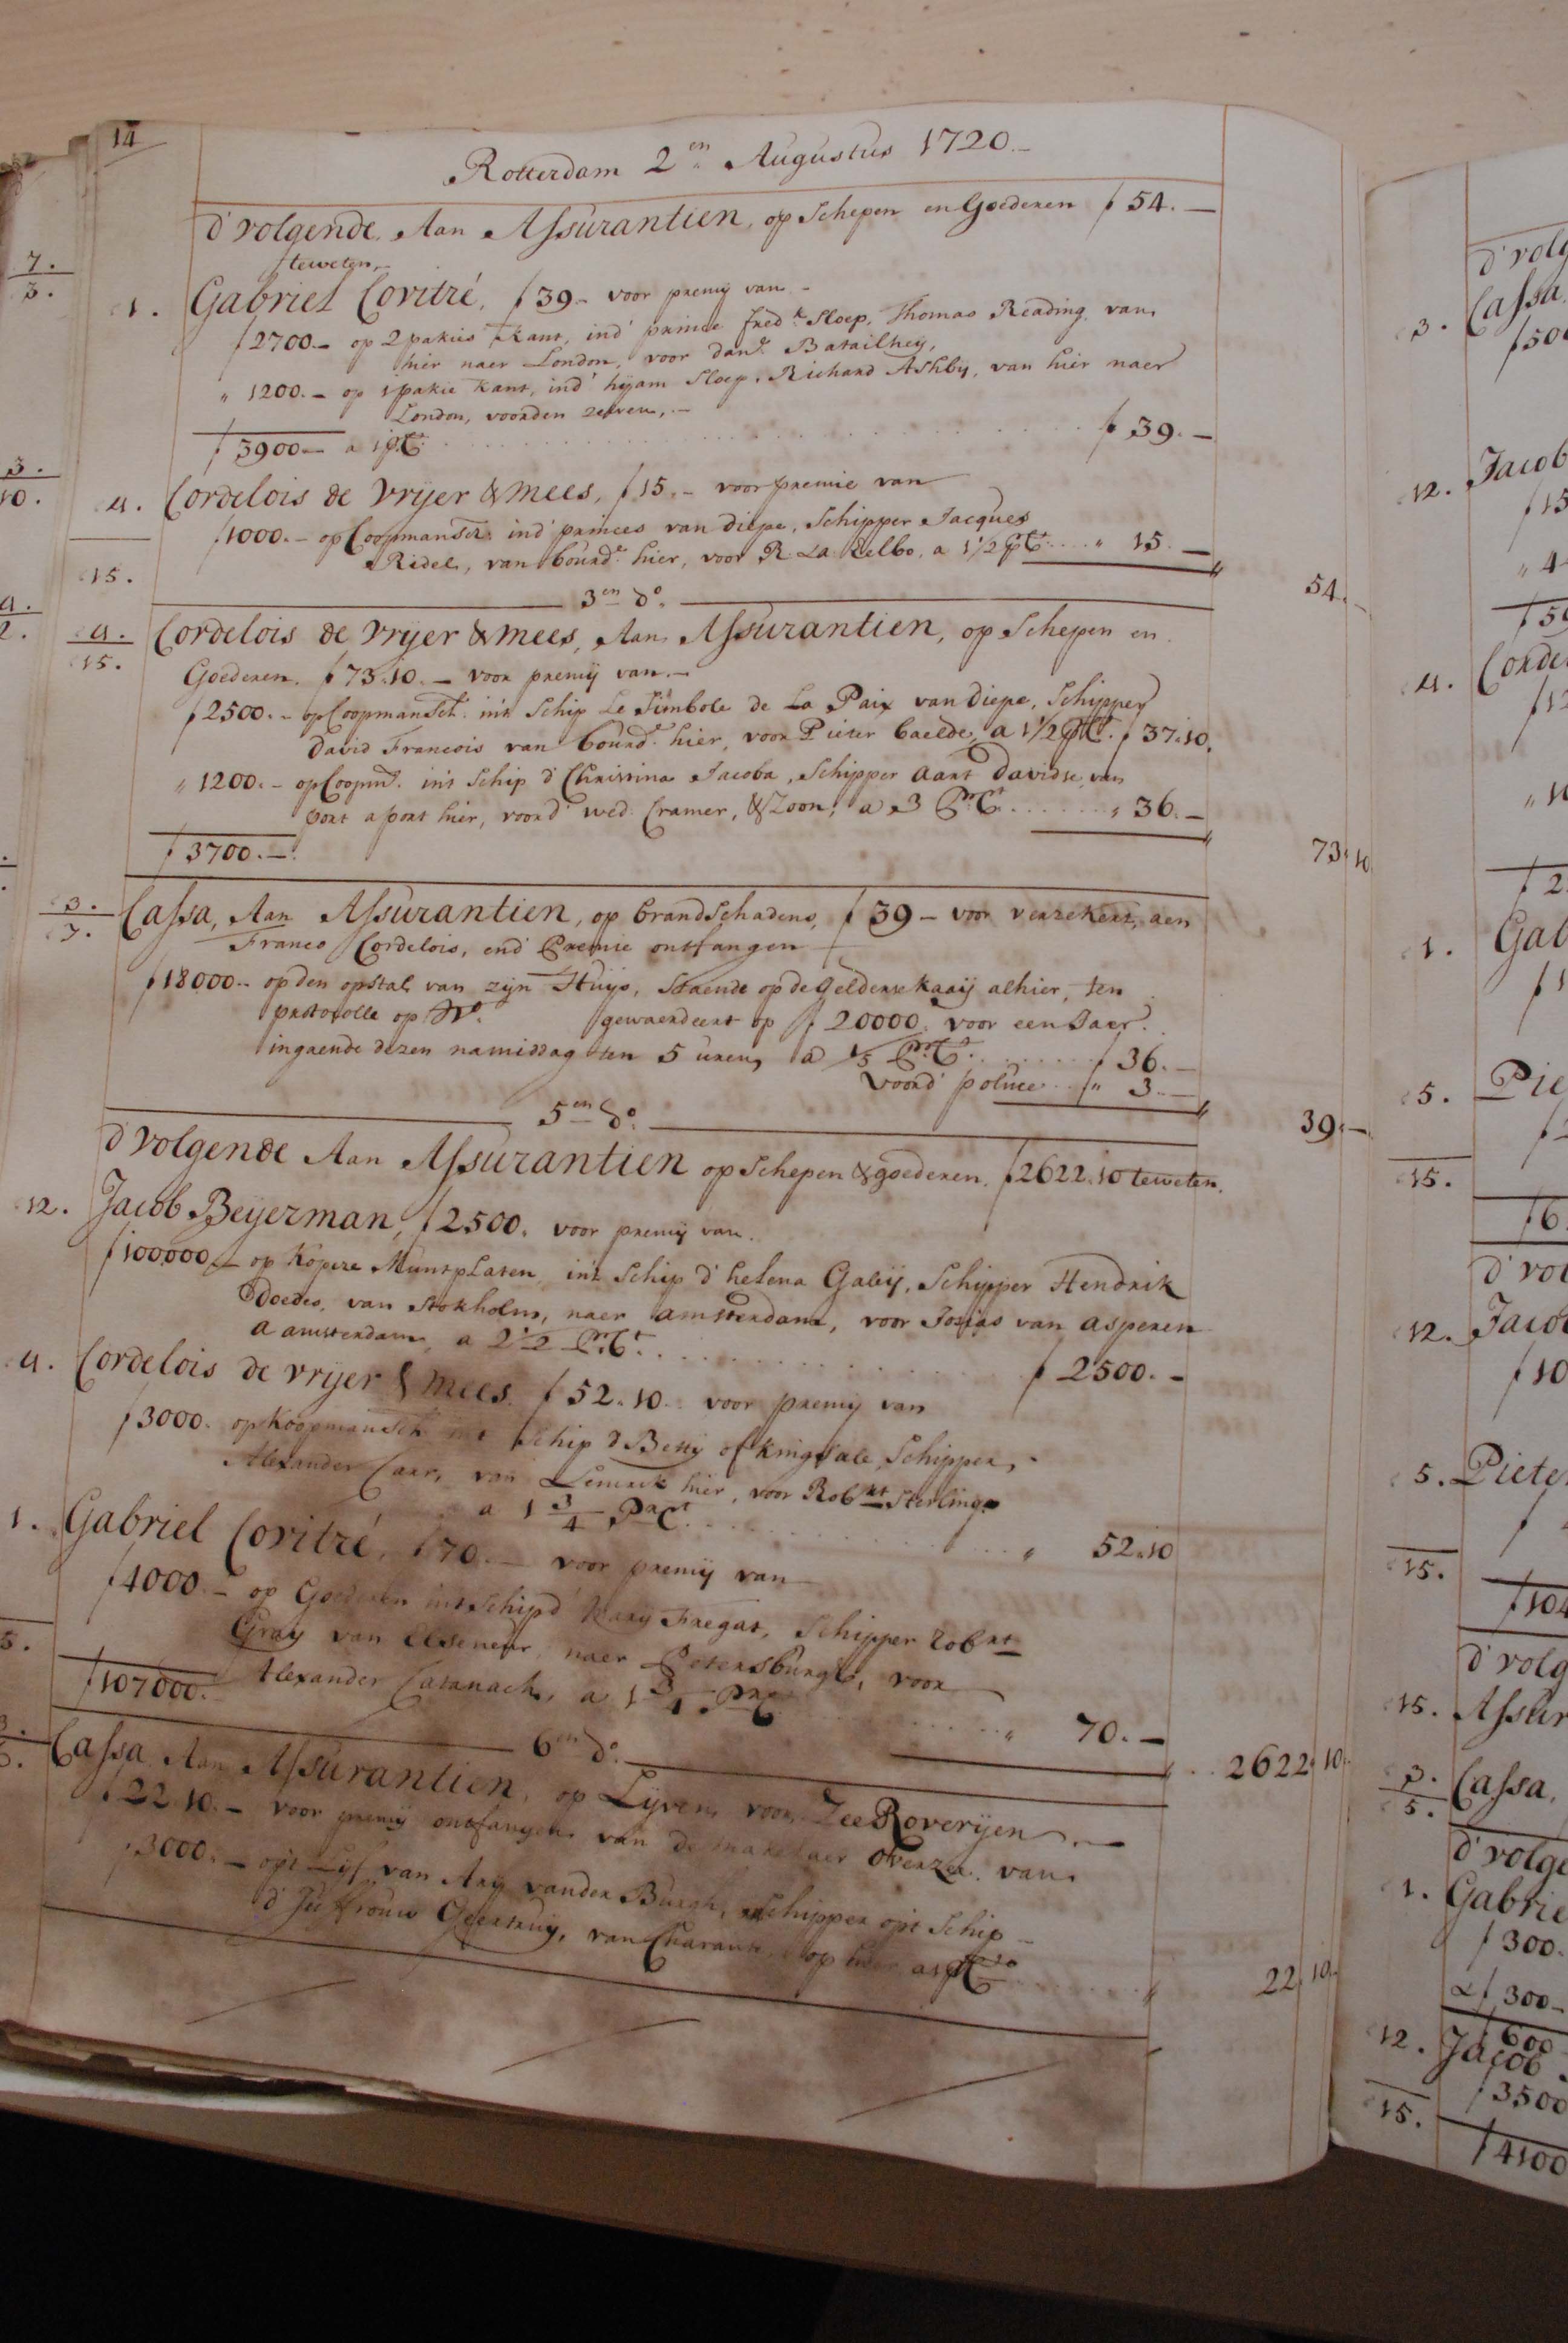 14
Rotterdam 2en Augustus 1720.-
d'volgende Aan Assurantien, op Schepen en Goederen f 54.-
teweten,-
1. Gabriel Covitré, f 39- voor premij van -
f 2700.- op 2 pakies kant, ind' prince Fredk Sloep, Thomas Reading van
hier naer London, voor Danl Batailhey,
" 1200.- op 1 pakie kant, ind' hijam Sloep, Richard Ashby, van hier naer
London, voorden zelven,.-
f 3900- a 1 pCt. f 39.-
4. Cordelois de Vrijer & Mees, f 15.- voor premie van
f 1000.- op Coopmansch. ind' princes van Diepe, Schipper Jacques
Ridel, van bourdx hier, voor R. La Relbo, a 1 1/2 pCt. " 15.-
15.
54.-
3en do.
4.
15.
Cordelois de Vrijer & Mees, Aan Assurantien, op Schepen en
Goederen. f 73.10.- voor premij van.-
f 2500.- op Coopmansch. int Schip Le Simbole de La Paix van Diepe, Schipper
David Francois van bourdx hier, voor Pieter Baelde, a 1 1/2 pCt. f 37.10.
" 1200.- op Coopm. int Schip d'Christina Jacoba, Schipper Aart Davidse, van
port a port hier, voord' wed: Cramer, & Zoon, a 3 PrCt. " 36.-
f 3700.-
73.10
3.
7.
Cassa, Aan Assurantien, op brandschadens, f 39- voor verzekert, aen
Franco Cordelois, end' Premie ontfangen
f 18000.- op den opstal van zijn Huijs, Staende op de geldersekaaij alhier, ten
protocolle op No. gewaerdeert op f 20000. voor een Jaer.
ingaende dezen namiddag ten 5 uren, a 1/5 PrCt. f 36.-
voord' police " 3.-
39.-
5en do.
d'volgende Aan Assurantien op Schepen & goederen. f 2622.10 teweten.
12. Jacob Beijerman, f 2500. voor premij van.
f 100000.- op Kopere Muntplaten, int Schip d'helena Galeij, Schipper Hendrik
Doedes, van Stokholm, naer amsterdam, voor Jozias van asperen
a amsterdam, a 2 1/2 PrCt. f 2500.-
4. Cordelois de Vrijer & Mees. f 52.10.- voor premij van
f 3000. op Koopmansch int Schip d'Betty of kingsale, Schipper,
Alexander Carr, van Lemrik hier, voor Robrt Sterling
a 1 3/4 PrCt. " 52.10
1. Gabriel Covitré, f 70.- voor premij van
f 4000.- op Goederen int Schip d' Mary Fregat, Schipper Robrt
Gray van Elseneur, naer Petersburgh, voor
Alexander Catanach, a 1 3/4 PrCt " 70.-
f 107000.-
2622.10.
6en do.
Cassa Aan Assurantien, op Lijven voor Zee Roverijen.-
f 22.10.- voor premij ontfangen van de makelaer Overzee van
f 3000.- opt Lijf van Ary vander Burgh, Schipper opt Schip
d' Juffrouw Geertruij, van
22.10.
7.
3.
3.
10.
4.
2.
5.
3.
d'volg
3. Cassa,
f 500
12. Jacob
f 15
" 4
f 59
4. Corde
f 12
" 1
f 2
1. Gab
f 1
5. Pie
15.
f 6
d'vol
12. Jacob
f 10
5. Piete
15.
f 104
d'volg
15. Assur
3.
5.
Cassa,
d'volge
1. Gabrie
f 300.
f 300-
f 600
12. Jacob
f 3500
15.
f 4100